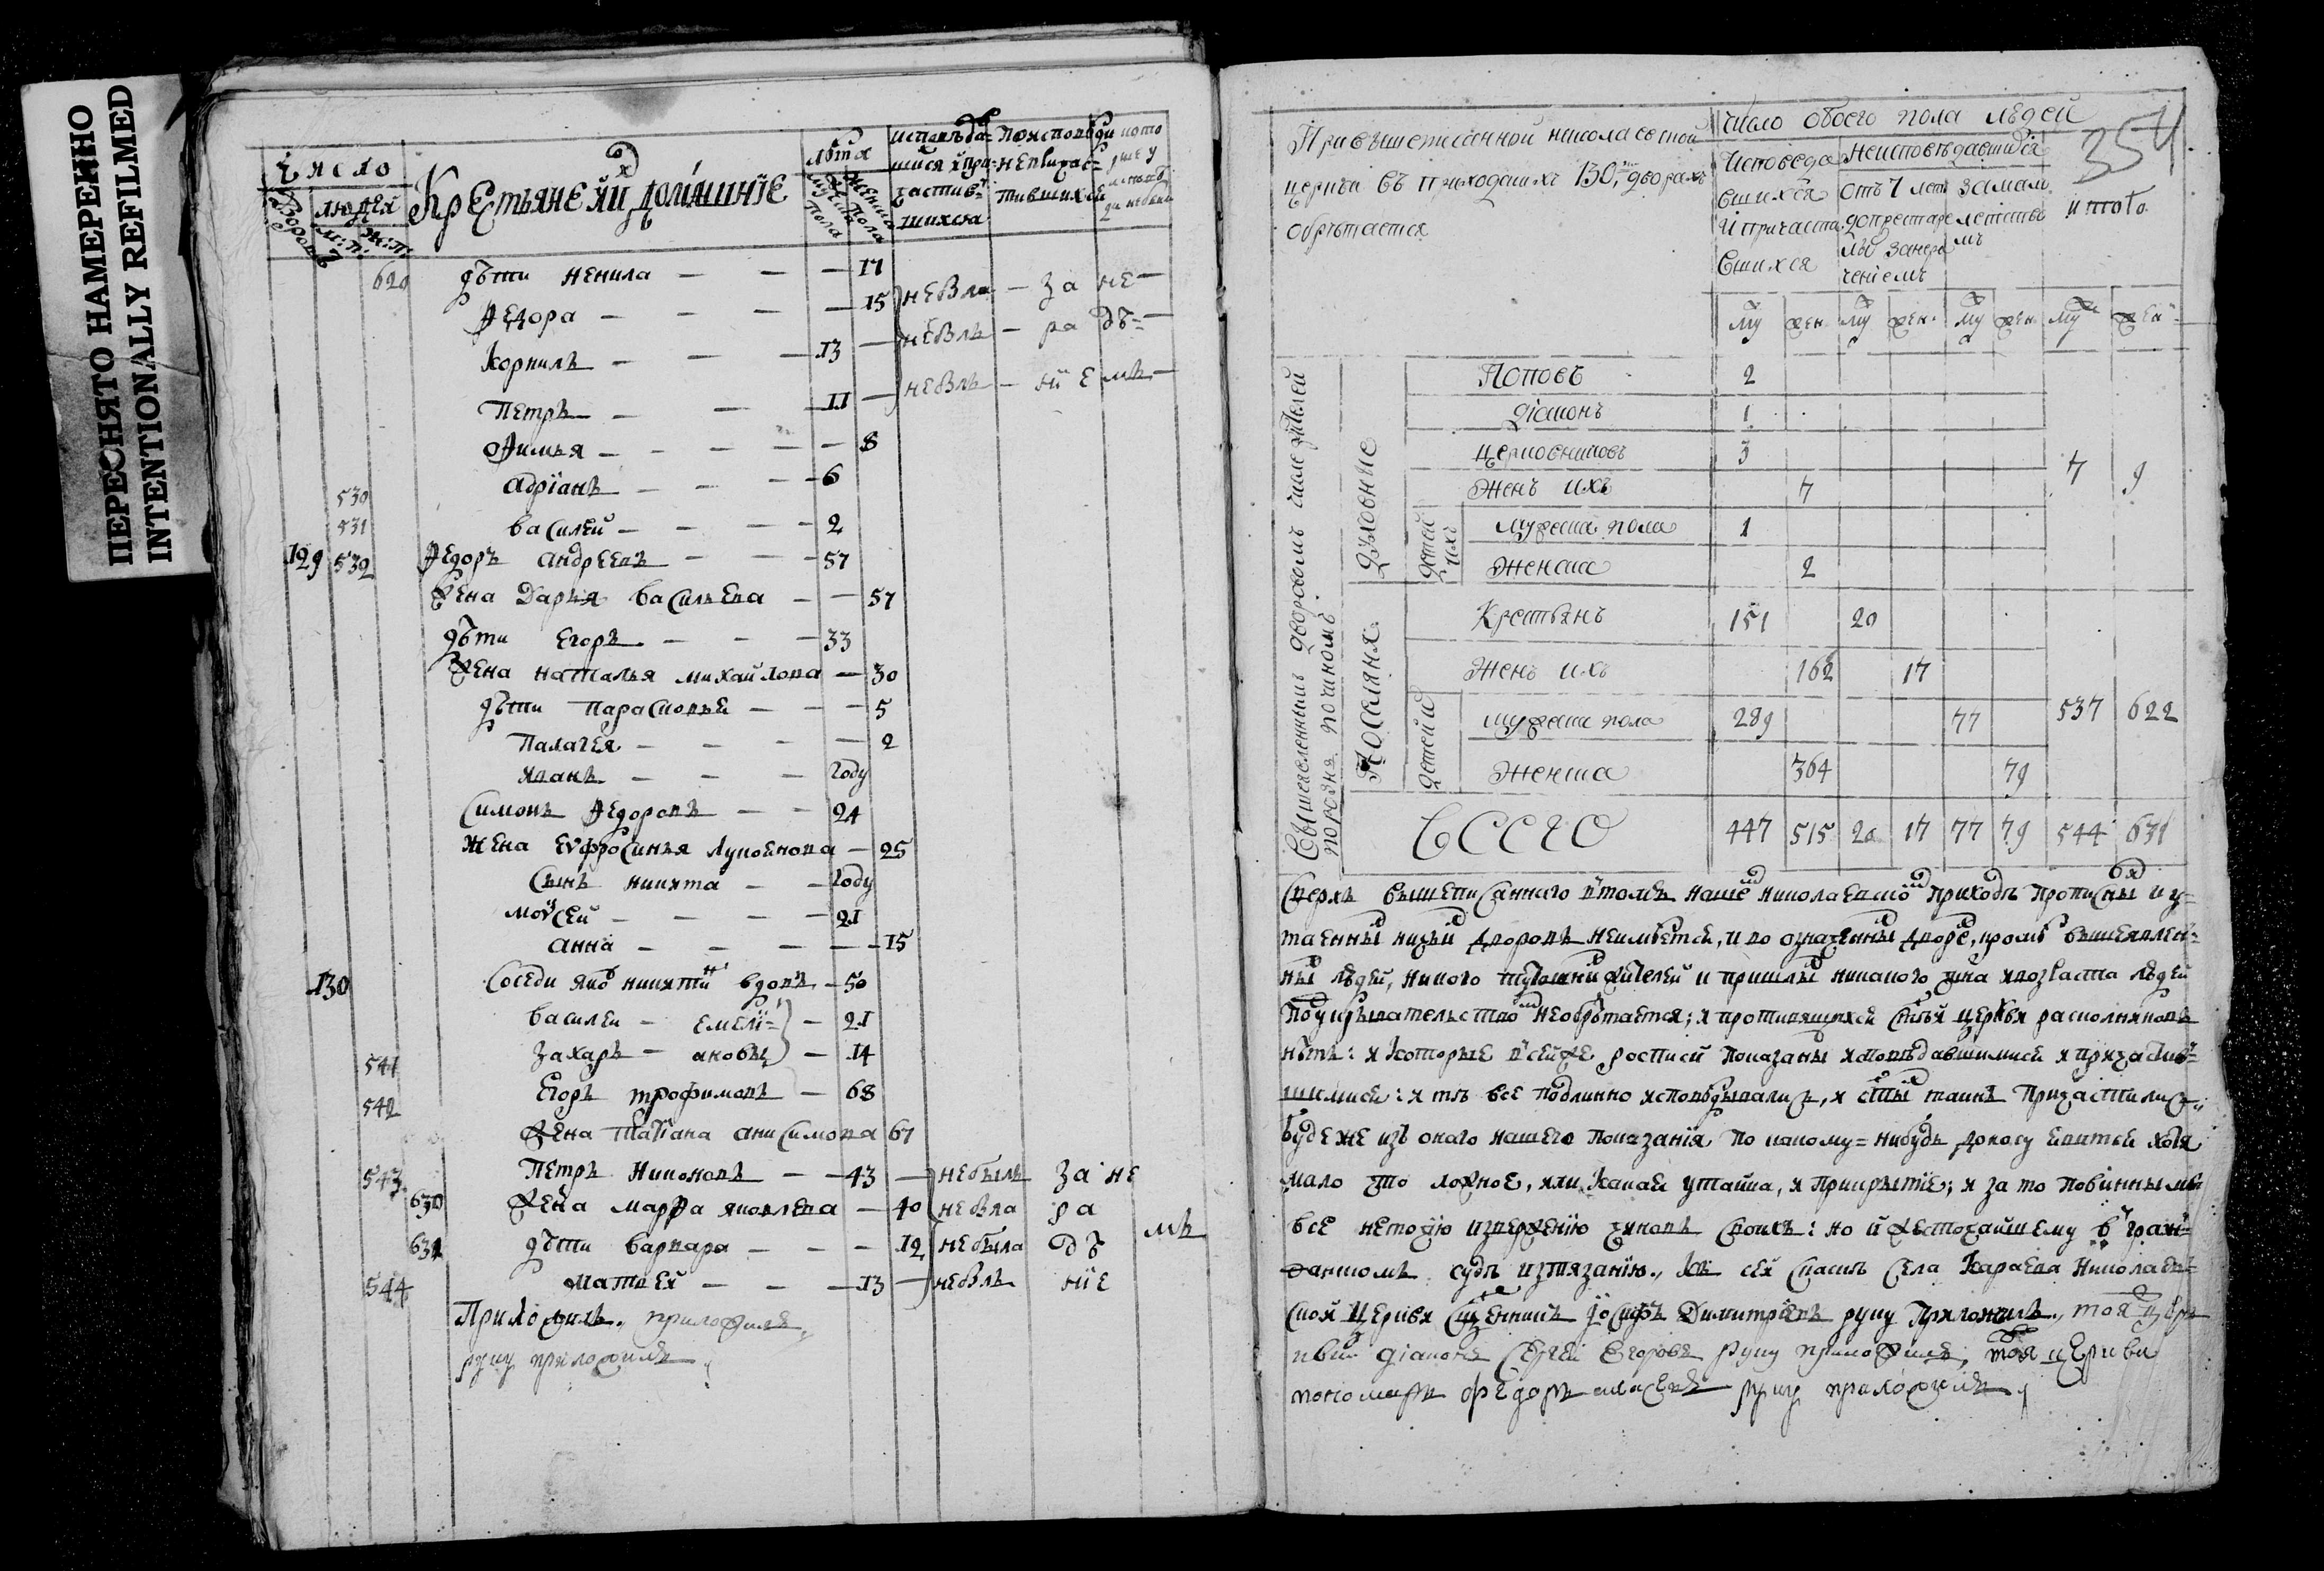 ПЕРЕСНЯТО НАМЕРЕННО
INTENTIONALLY REFILMED
Число
дворовъ
людей
м: п:
ж: п:
Крестьяне и ихъ домашнїе
лѣта
мужеска пола
женска пола
620 дѣти Ненила — — — 17
Федора — — — 15 небыла — за не —
Корнилъ — — — 13 — небылъ — ра дѣ= —
Петръ — — — 11 — небылъ — нїемъ —
Фимья — — — 8
Адрїанъ — — — 6
530
531 Василей — — — 2
129 532 Федоръ Андреевъ — — 57
Жена Дарья Васильева — — 57
дѣти Егоръ — — — 33
Жена Наталья Михайлова — 30
дѣти Парасковья — — — 5
Палагея — — — 2
Иванъ — — — году
Симонъ Федоровъ — — 24
Жена Еѵфросинья — 25
Сынъ Никита — — году
Моѵсей — — — 21
Анна — — — 15
130 Соседи вдовъ — 50
Василей — Емелї= — 21
541 Захаръ — ановы — 14
542 Егоръ Трофимовъ — 68
Жена Татїана Анисимова 67
543 Петръ Никоновъ — — 43 — небылъ за не
630 Жена Марфа Яковлева — 40 небыла ра
631 дѣти Варвара — — — 12 небыла дѣ мъ
544 Матвей — — — 13 — небылъ нїе
Приложилъ. приложилъ,
руку приложилъ
При вышеписанной николаевской
церкви въ приходскихъ 130, дворахъ
обрѣтается
число обоего пола людей
354
Исповеда
вшихся
и причаста
вшихся
Неисповѣдавшихся
отъ 7 лет
до престаре
лы за нера
ченїемъ
за мал
летство
мъ
итого
му жен му жен му жен му жен
Свышеявленнымъ дворовомъ числе жителей
порознь по чиномъ
Духовные
Поповъ 2
Дїаконъ 1
церковниковъ 3
Женъ ихъ 7
7 9
детей ихъ
мужеска пола 1
Женска 2
Поселяня
Крестьянъ 151 20
Женъ ихъ 162 17
детей и
мужеска пола 289 77 537 622
Женска 364 79
Всего 447 515 20 17 77 79 544 631
Сверхъ вышеписанного въ томъ нашемъ николаевскомъ приходѣ прописныхъ и у=
таенныхъ дворовъ неимѣется, и во означенныхъ дворехъ, кромѣ вышеявлен=
ныхъ людей, никого жителей и пришлыхъ никакого чина и возраста людей
необрѣтается; и противящихся святѣй церкви расколниковъ
нѣтъ: и которые в сейже росписи показаны исповѣдавшимися и причастив=
шимися: и тѣ все подлинно исповѣдывались, и святыхъ таинъ причастились;
буде же изъ онаго нашего показанїя по какому=нибудь доносу явится хотя
мало что ложное, или какая утайка, и прикрытїе; и за то повинны мы
все неточїю изверженїю чиновъ своихъ: но и жесточайшему въ граж=
данскомъ судѣ изтязанїю. Къ сей сказкѣ села Караева Николаев=
ской церкви священникъ Іосифъ Димитрїевъ руку приложилъ, тоя цер
кви дїаконъ Сергей Егоровъ руку приложилъ, тоя церкви
пономарь Федоръ руку приложилъ